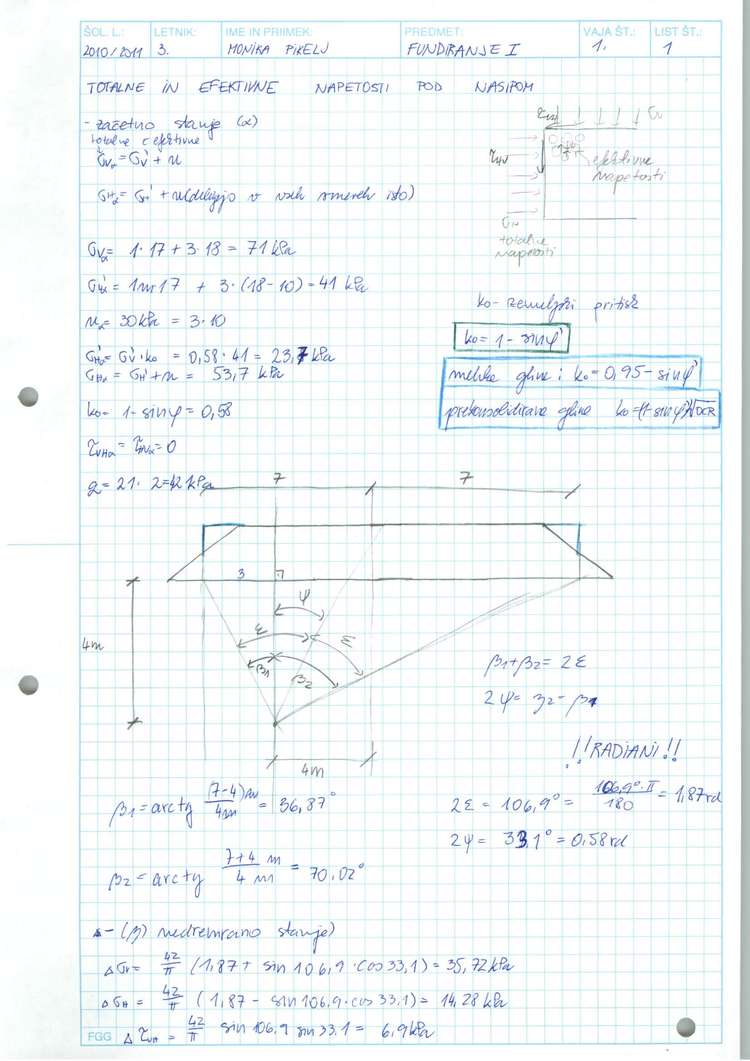 ŠOL. L.: LETNIK: IME IN PRIIMEK: PREDMET: VAJA ŠT.: LIST ŠT.:
2010/2011 3. MONIKA PIRELJ FUNDIRANJE I 1. 1
TOTALNE IN EFEKTIVNE NAPETOSTI POD NASIPOM
- začetno stanje (α)
totalne efektivne
σv = σv' + u
σHα = σH' + u (delujejo v vseh smereh isto)
efektivne
napetosti
σH
totalne
napetosti
σVα = 1·17 + 3·18 = 71 kPa
σVα' = 1m·17 + 3·(18-10) = 41 kPa
uα = 30 kPa = 3·10
σHα' = σv'·k0 = 0,58·41 = 23,7 kPa
σHα = σH' + u = 53,7 kPa
k0 = 1 - sinφ = 0,58
τVHα = τHVα = 0
q = 21·2 = 42 kPa
k0 - zemeljski pritisk
k0 = 1 - sinφ'
mehke gline: k0 = 0,95 - sinφ'
prekonsolidirane gline k0 = (1-sinφ')√OCR
7 7
3 7
ψ
ε ε
β1 β2
4m
4m
β1+β2 = 2ε
2ψ = β2 - β1
!!RADIANI!!
β1 = arctg (7-4)m / 4m = 36,87°
2ε = 106,9° = 106,9°·π / 180 = 1,87 rd
2ψ = 33,1° = 0,58 rd
β2 = arctg 7+4 m / 4 m = 70,02°
- (β) nedrenirano stanje)
Δσv = 42/π (1,87 + sin 106,9 · cos 33,1) = 35,72 kPa
ΔσH = 42/π (1,87 - sin 106,9 · cos 33,1) = 14,28 kPa
ΔτVH = 42/π sin 106,9 sin 33.1 = 6,9 kPa
FGG